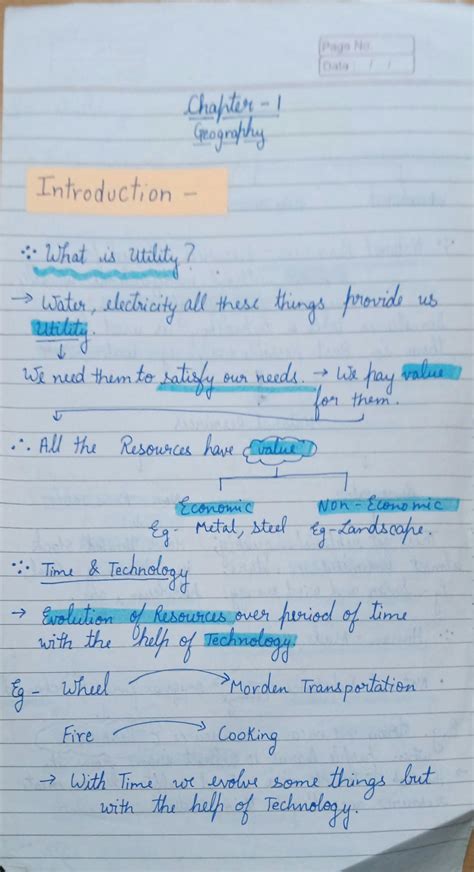 Page No.
Date: / /
Chapter - 1
Geography
Introduction -
What is Utility?
→ Water, electricity all these things provide us
Utility.
↓
We need them to satisfy our needs. → We pay value
for them.
∴ All the Resources have value
Economic Non-Economic
Eg- Metal, steel Eg-Landscape.
Time & Technology
→ Evolution of Resources over period of time
with the help of Technology.
Eg - Wheel → Morden Transportation
Fire → Cooking
→ With Time we evolve some things but
with the help of Technology.